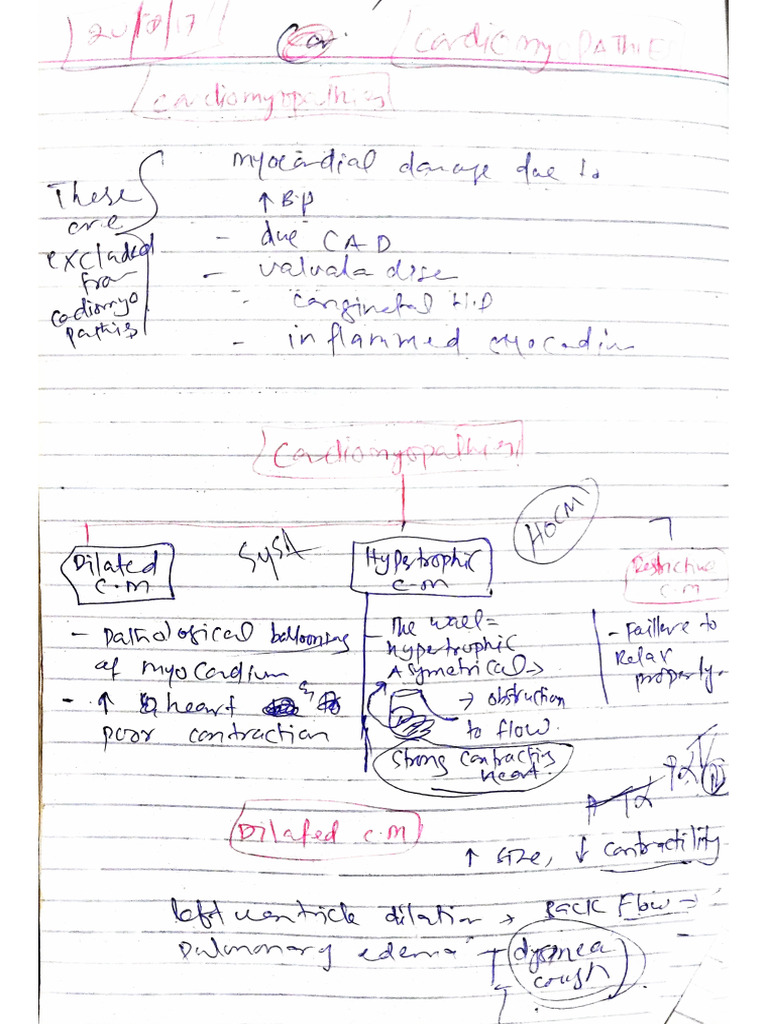 20/08/17
CARDIOMYOPATHIES
Cardiomyopathies
These
are
excluded
from
cadiomyo
pathis
myocardial damage due to
↑ BP
- due CAD
- valvula dise
- conginetal H.D
- inflammed myocadium
Cardiomyopathies
Dilated
C.M
SYSA
Hypertrophic
C-M
HOCM
Restrictive
C.M
- Pathological ballooning
of myocardium
- ↑ heart
poor contraction
- The wall =
hypertrophic
Asymetrical →
→ obstruction
to flow.
Strong contracting
heart.
- Failure to
Relax
properly.
Dilated C.M
↑ size, ↓ contractility
left ventricle dilation → Back Flow →
pulmonary edema →
dyspnea
cough